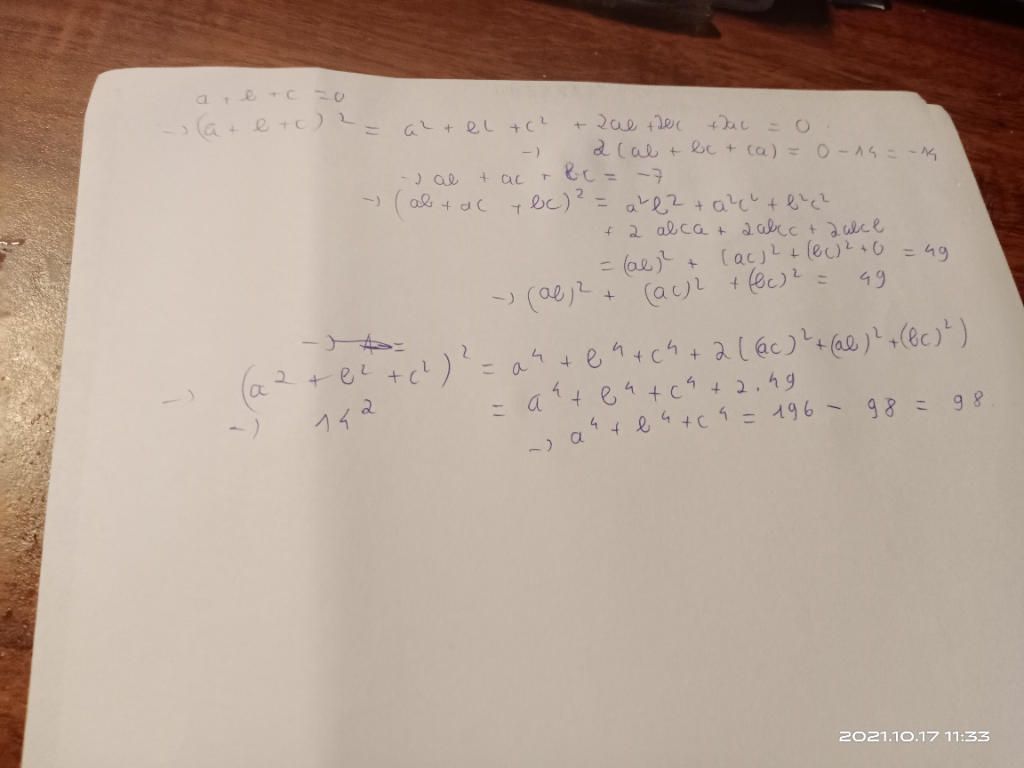 a + b + c = 0
→ (a + b + c)² = a² + b² + c² + 2ab + 2bc + 2ac = 0
→ 2(ab + bc + ca) = 0 - 14 = -14
→ ab + ac + bc = -7
→ (ab + ac + bc)² = a²b² + a²c² + b²c²
+ 2 abca + 2abcc + 2abcb
= (ab)² + (ac)² + (bc)² + 0 = 49
→ (ab)² + (ac)² + (bc)² = 49
→ (a² + b² + c²)² = a⁴ + b⁴ + c⁴ + 2((ac)² + (ab)² + (bc)²)
→ 14² = a⁴ + b⁴ + c⁴ + 2.49
→ a⁴ + b⁴ + c⁴ = 196 - 98 = 98.
2021.10.17 11:33